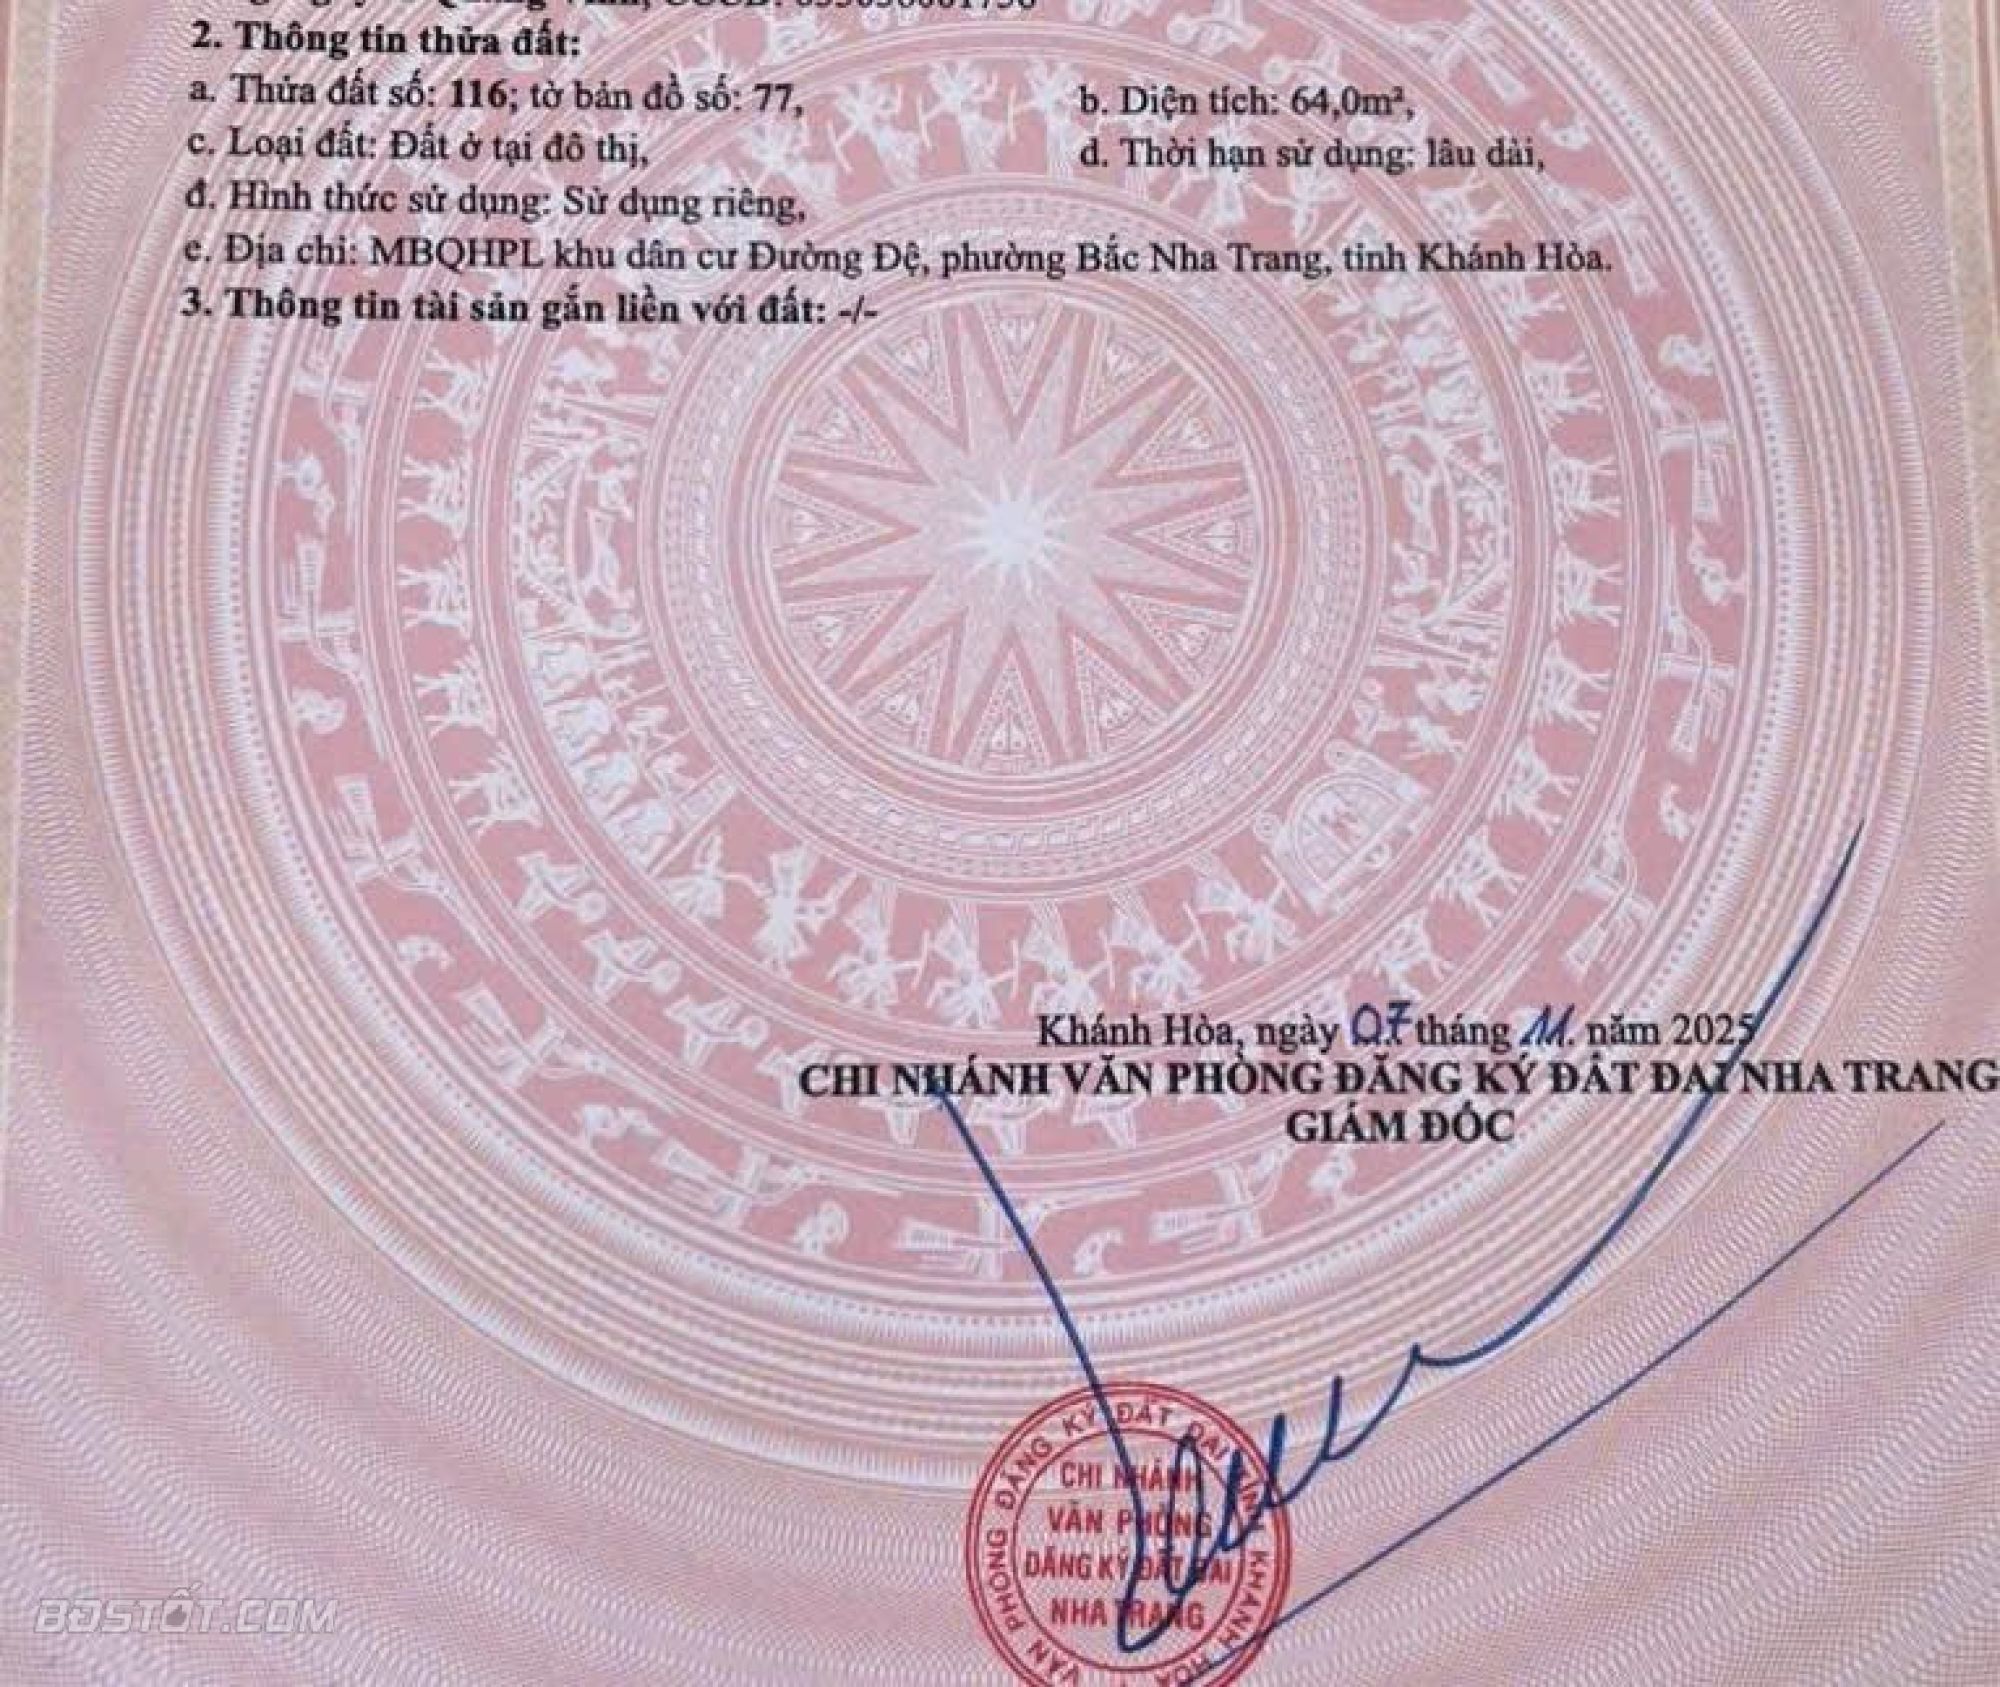 2. Thông tin thửa đất:
a. Thửa đất số: 116; tờ bản đồ số: 77,
b. Diện tích: 64,0m²,
c. Loại đất: Đất ở tại đô thị,
d. Thời hạn sử dụng: lâu dài,
đ. Hình thức sử dụng: Sử dụng riêng,
e. Địa chỉ: MBQHPL khu dân cư Đường Đệ, phường Bắc Nha Trang, tỉnh Khánh Hòa.
3. Thông tin tài sản gắn liền với đất: -/-
Khánh Hòa, ngày 07 tháng 11. năm 2025
CHI NHÁNH VĂN PHÒNG ĐĂNG KÝ ĐẤT ĐAI NHA TRANG
GIÁM ĐỐC
VĂN PHÒNG ĐĂNG KÝ ĐẤT ĐAI TỈNH KHÁNH HÒA
CHI NHÁNH
VĂN PHÒNG
ĐĂNG KÝ ĐẤT ĐAI
NHA TRANG
BĐSTỐT.COM